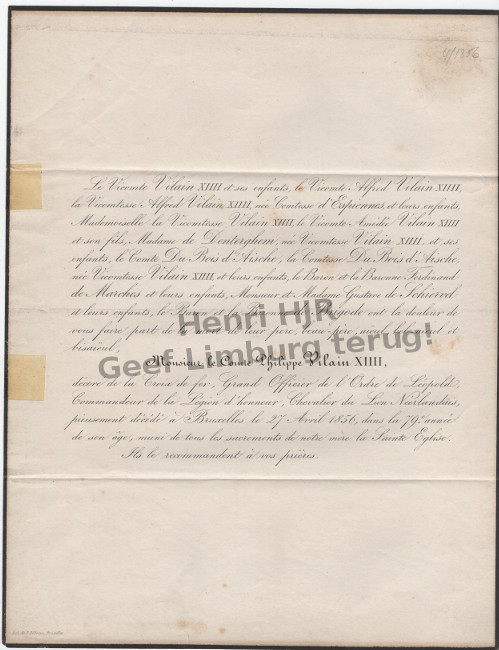 4/1856
Le Vicomte Vilain XIIII et ses enfants, le Vicomte Alfred Vilain XIIII,
la Vicomtesse Alfred Vilain XIIII, née Comtesse d'Espiennes, et leurs enfants,
Mademoiselle la Vicomtesse Vilain XIIII, le Vicomte Amédée Vilain XIIII
et son fils, Madame de Denterghem, née Vicomtesse Vilain XIIII, et ses
enfants, le Comte Du Bois d'Aische, la Comtesse Du Bois d'Aische,
née Vicomtesse Vilain XIIII, et leurs enfants, le Baron et la Baronne Ferdinand
de Maches et leurs enfants, Monsieur et Madame Gustave de Schiervel
et leurs enfants, le Baron et la Baronne de ont la douleur de
vous faire part de la mort de leur père, beau-père, aïeul et
bisaïeul,
Monsieur le Comte Philippe Vilain XIIII,
décoré de la Croix de fer, Grand Officier de l'Ordre de Léopold,
Commandeur de la Légion d'honneur, Chevalier du Lion Néerlandais,
pieusement décédé à Bruxelles le 27 Avril 1856, dans la 79e année
de son âge, muni de tous les sacrements de notre mère la Sainte Eglise.
Ils le recommandent à vos prières.
Henri HJR
Geef Limburg terug!